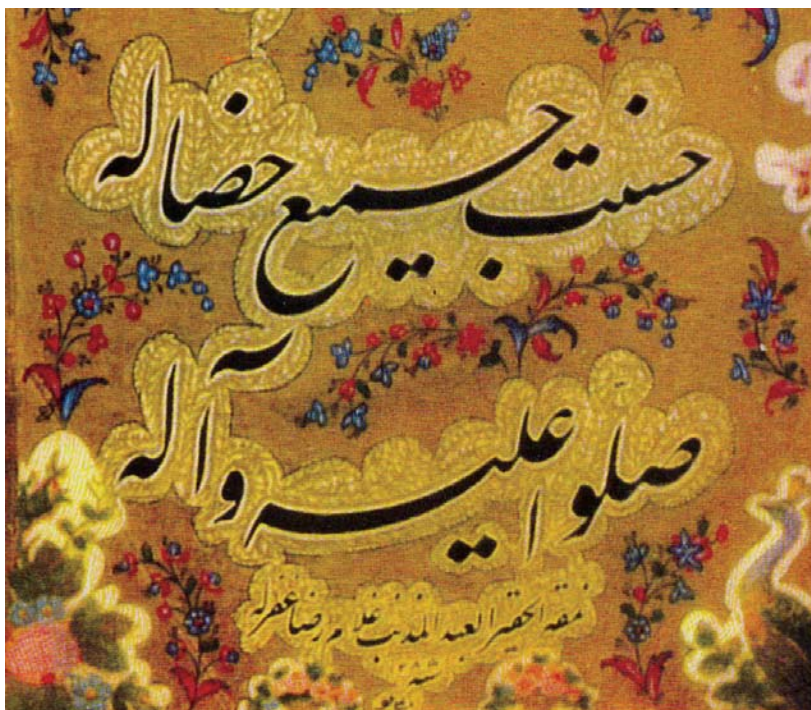 حسنت جمیع خصاله
صلوا علیه وآله
نمقه الحقیر العبد المذنب غلام رضا غفرله
سنه